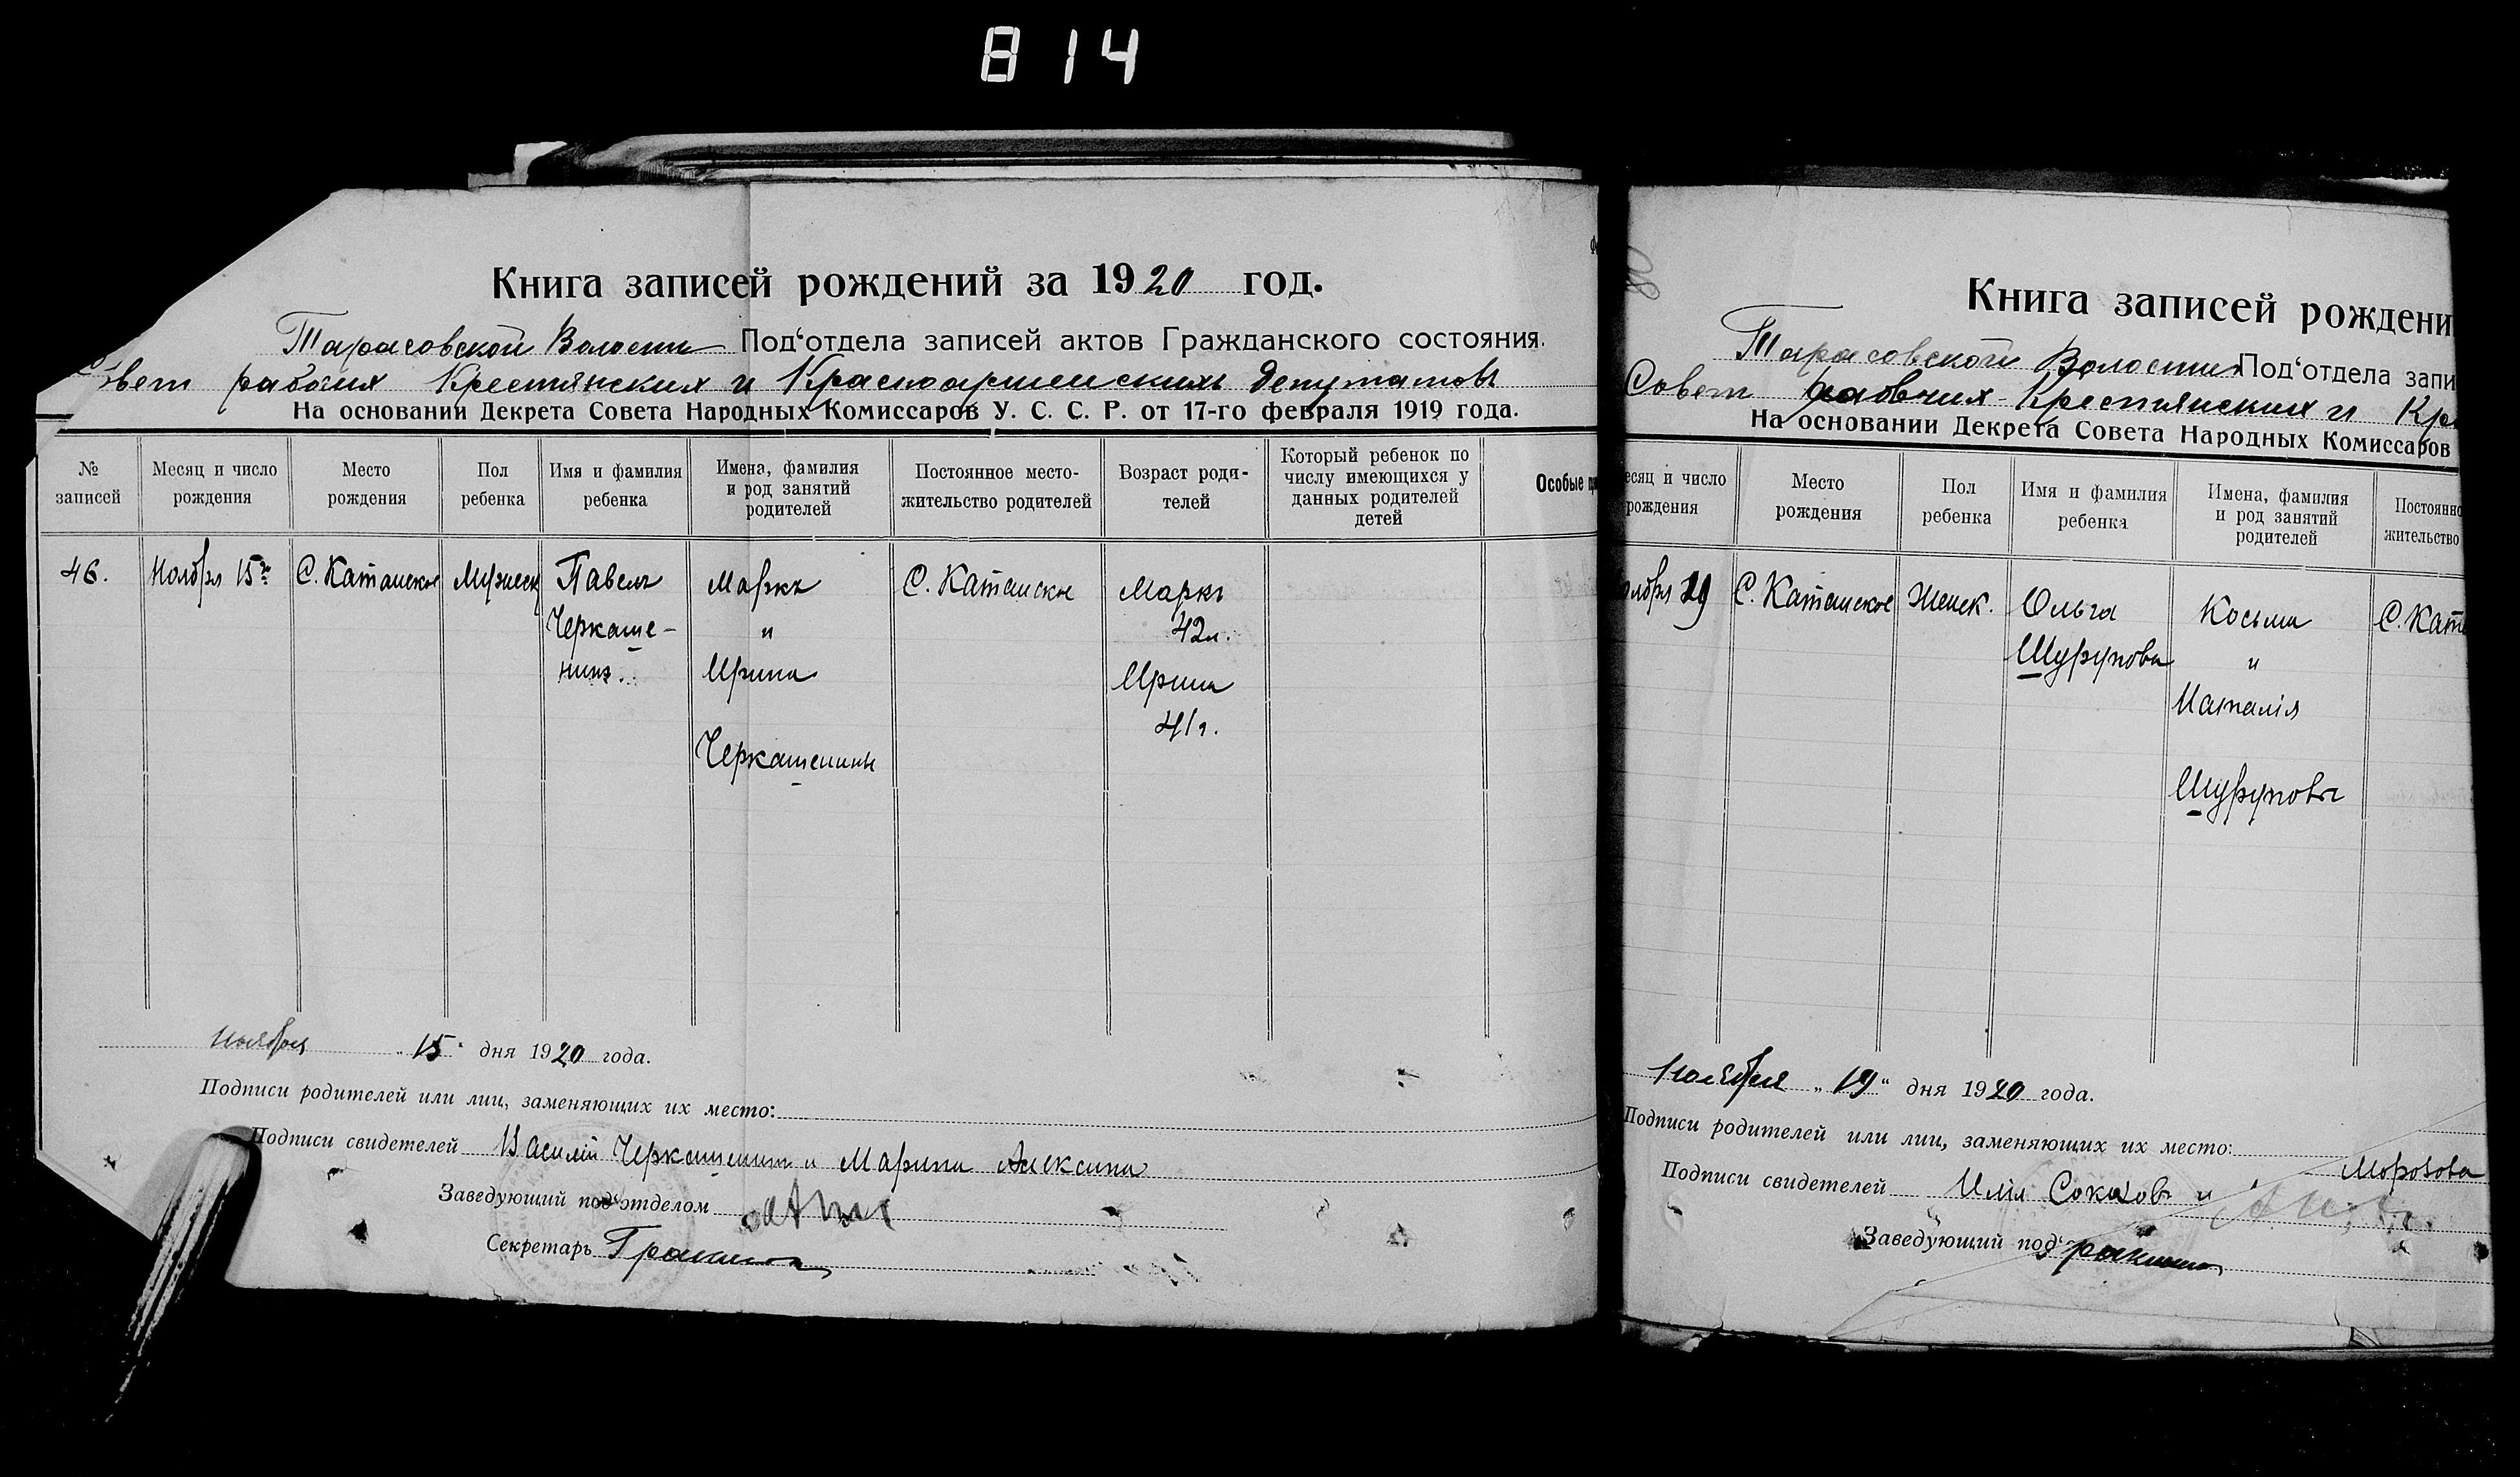 814
Книга записей рождений за 1920 год.
Тарасовской Волости Под‘отдела записей актов Гражданского состояния.
рабочих Крестянских и Красноармейскихъ Депутатовъ
На основании Декрета Совета Народных Комиссаров У. С. С. Р. от 17-го февраля 1919 года.
№ записей
Месяц и число рождения
Место рождения
Пол ребенка
Имя и фамилия ребенка
Имена, фамилия и род занятий родителей
Постоянное место-жительство родителей
Возраст роди-телей
Который ребенок по числу имеющихся у данных родителей детей
Особые
46.
Ноября 15го
С. Катанское
Мужеск
Павелъ
Черкаше-
нинъ.
Маркъ
и
Ирина
Черкашенины
С. Катанское
Маркъ
42л.
Ирина
41г.
ноября „15“ дня 1920 года.
Подписи родителей или лиц, заменяющих их место:
Подписи свидетелей Василій Черкашенинъ и Марина Алексина
Заведующий под‘отделом
Секретарь
80
Книга записей рождени
Тарасовской Волости Под‘отдела запи
Совет рабочих Крестянских и Кра
На основании Декрета Совета Народных Комиссаров
есяц и число рождения
Место рождения
Пол ребенка
Имя и фамилия ребенка
Имена, фамилия и род занятий родителей
Постоянно
жительство
оября 19
С. Катанское
Женск.
Ольга
Шурупова
Косьма
и
Наталія
Шуруповы
С. Ката
Ноября „19“ дня 1920 года.
Подписи родителей или лиц, заменяющих их место:
Подписи свидетелей Илія Соколовъ и Морозова
Заведующий под‘